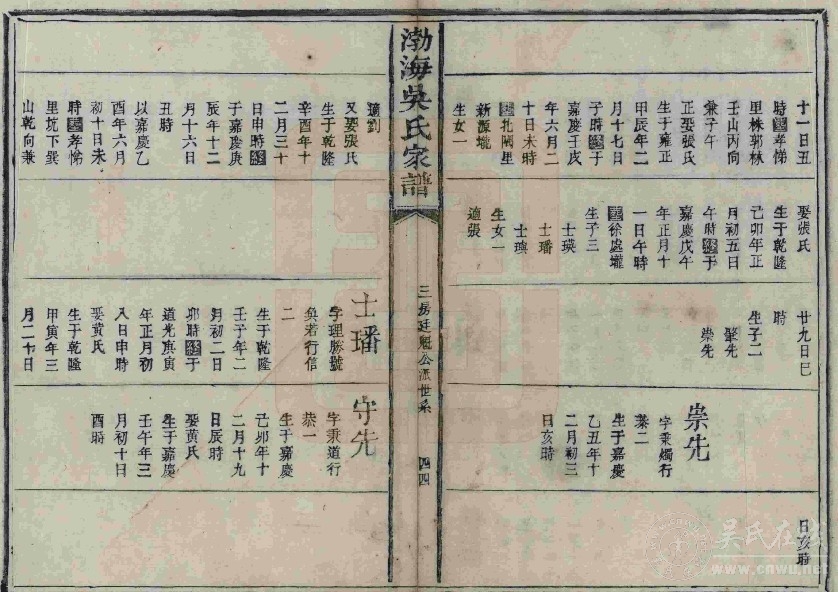 十一日丑
時葬孝悌
里株郭林
壬山丙向
兼子午
正娶張氏
生于雍正
甲辰年二
月十七日
子時終于
嘉慶壬戌
年六月二
十日未時
葬北閘里
新源壠
生女一
娶張氏
生于乾隆
己卯年正
月初五日
午時終于
嘉慶戊午
年正月十
一日午時
葬徐處壠
生子三
士瑛
士璠
士璵
生女一
適張
廿九日巳
時
生子二
肇先
崇先
崇先
字秉燭行
二
生于嘉慶
乙丑年十
二月初三
日亥時
日亥時
渤海吳氏家譜
三房廷魁公派世系
四四
適劉
又娶張氏
生于乾隆
辛酉年十
二月三十
日申時終
于嘉慶庚
辰年十二
月十六日
丑時
以嘉慶乙
酉年六月
初十日未
時葬孝悌
里坑下巽
山乾向兼
士璠
字理勝號
奐若行信
二
生于乾隆
壬子年二
月初二日
卯時終于
道光庚寅
年正月初
八日申時
娶黃氏
生于乾隆
甲寅年三
月二十日
守先
字秉道行
恭一
生于嘉慶
己卯年十
二月十九
日辰時
娶黃氏
生于嘉慶
壬午年三
月初十日
酉時
吴氏在线
www.cnwu.net